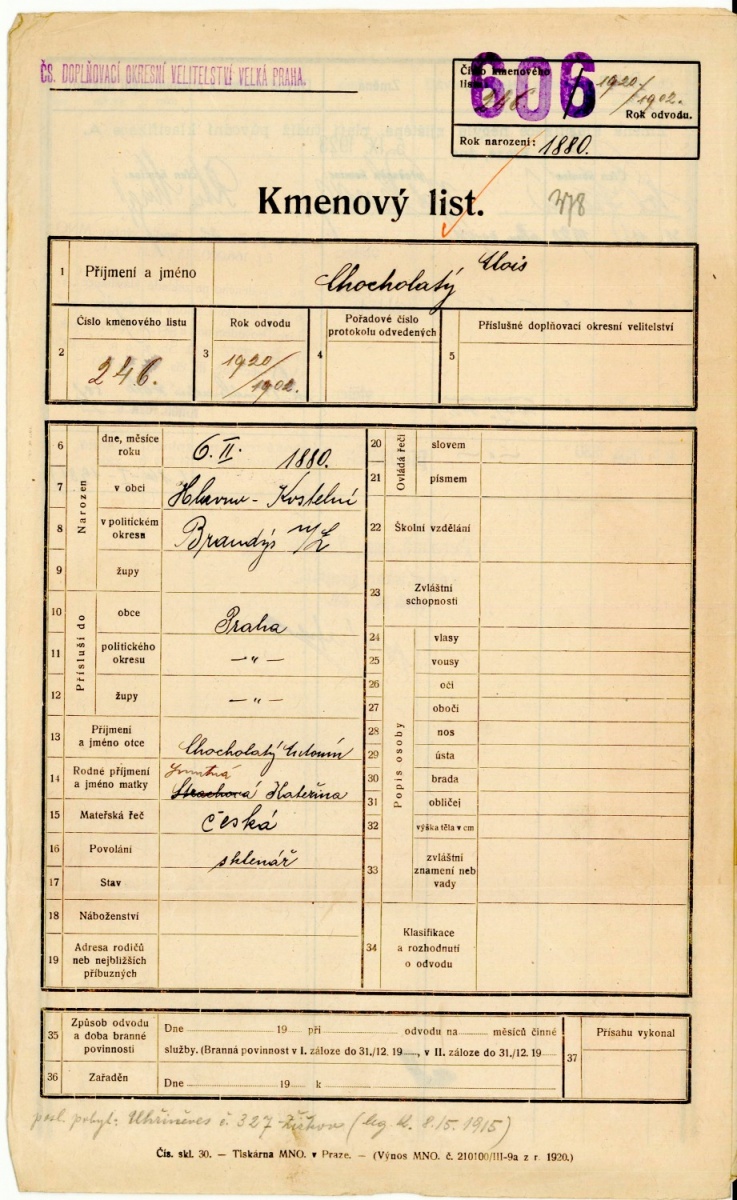 ČS. DOPLŇOVACÍ OKRESNÍ VELITELSTVÍ VELKÁ PRAHA.
606
Číslo kmenového
listu 246 / 1920/1902.
Rok odvodu.
Rok narození: 1880.
Kmenový list. 378
1 Příjmení a jméno Chocholatý Alois
2 Číslo kmenového listu 246.
3 Rok odvodu 1920/1902.
4 Pořadové číslo protokolu odvedených
5 Příslušné doplňovací okresní velitelství
Narozen
6 dne, měsíce roku 6. II. 1880.
7 v obci Hlavno - Kostelní
8 v politickém okresu Brandýs n/L
9 župy
Přísluší do
10 obce Praha
11 politického okresu —„—
12 župy —„—
13 Příjmení a jméno otce Chocholatý Antonín
14 Rodné příjmení a jméno matky Strachová Kateřina
15 Mateřská řeč česká
16 Povolání sklenář
17 Stav
18 Náboženství
19 Adresa rodičů neb nejbližších příbuzných
Ovládá řeči
20 slovem
21 písmem
22 Školní vzdělání
23 Zvláštní schopnosti
Popis osoby
24 vlasy
25 vousy
26 oči
27 obočí
28 nos
29 ústa
30 brada
31 obličej
32 výška těla v cm
33 zvláštní znamení neb vady
34 Klasifikace a rozhodnutí o odvodu
35 Způsob odvodu a doba branné povinnosti
Dne 19 při odvodu na měsíců činné
služby. (Branná povinnost v I. záloze do 31./12. 19 , v II. záloze do 31./12. 19
36 Zařaděn
Dne 19 k
37 Přísahu vykonal
posl. pobyt: Uhříněves č. 327 Žižkov (leg. d. 8.15.1915)
Čís. skl. 30. — Tiskárna MNO. v Praze. — (Výnos MNO. č. 210100/III-9a z r. 1920.)